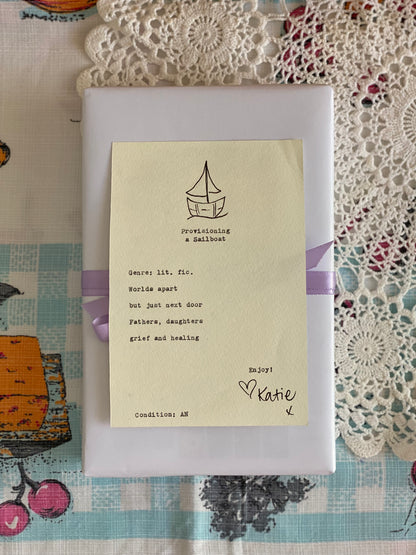 Provisioning
a Sailboat
Genre: lit. fic.
Worlds apart
but just next door
Fathers, daughters
grief and healing
Enjoy!
♡Katie
x
Condition: AN